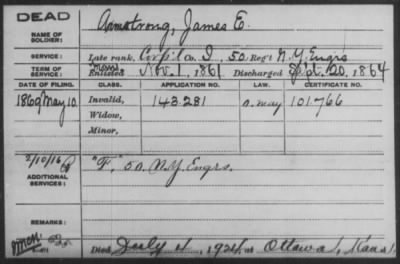 DEAD
NAME OF SOLDIER: Armstrong, James E.
SERVICE: Late rank, Corp'l Co. I, 50 Reg't N.Y. Engrs
TERM OF SERVICE: Enlisted Nov. 1, 1861, Discharged Sept. 20, 1864
DATE OF FILING. CLASS. APPLICATION NO. LAW. CERTIFICATE NO.
1869 May 10 Invalid, 143.281 101.766
Widow,
Minor,
2/10/16 "F," 50 N.Y. Engrs.
ADDITIONAL SERVICES:
REMARKS:
Died July 4, 1924, at Ottawa, Kans.